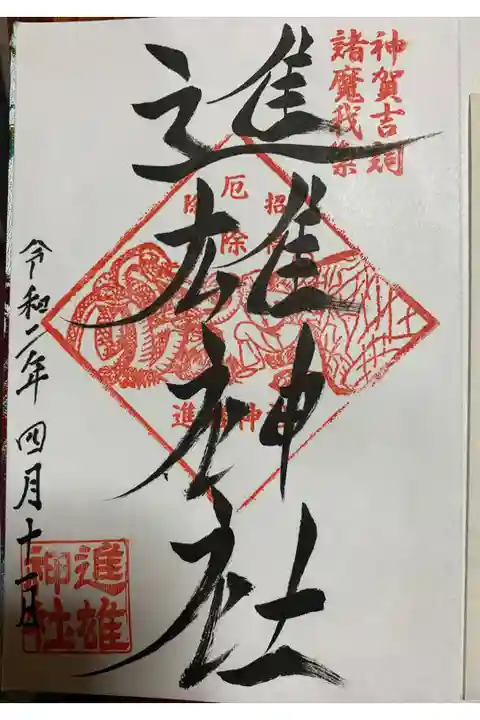 神賀吉詞
諸魔
進雄神社
招
厄除
除
進 神
令和二年四月十一日
進雄
神社